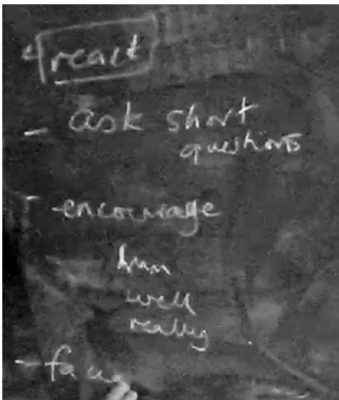 4 react
- ask short
questions
- encourage
hum
well
really